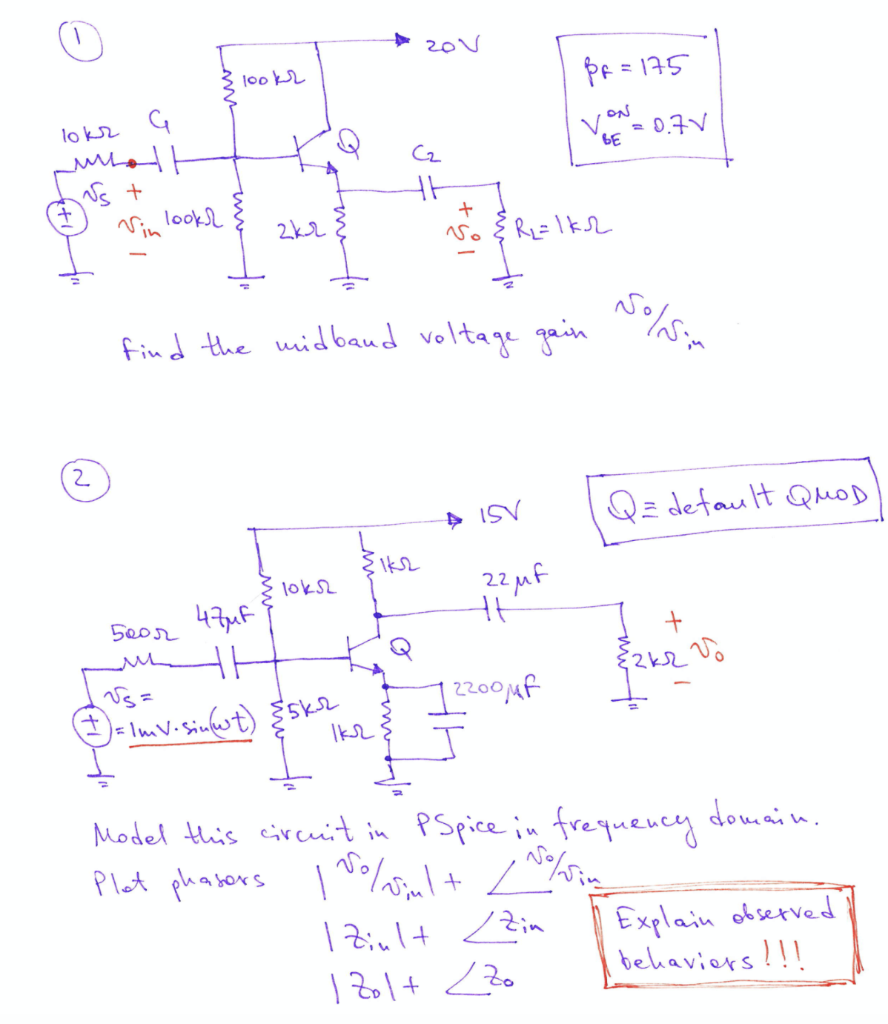 1
20V
100kΩ
βF = 175
V_BE^ON = 0.7V
10kΩ
C1
Q
C2
vs
+
vin
−
100kΩ
2kΩ
+
vo
−
RL=1kΩ
find the midband voltage gain vo/vin
2
15V
Q ≡ default QMOD
1kΩ
10kΩ
22μF
500Ω
47μF
Q
+
2kΩ
vo
−
vs =
= 1mV·sin(ωt)
5kΩ
1kΩ
2200μF
Model this circuit in PSpice in frequency domain.
Plot phasors |vo/vin| + ∠vo/vin
|Zin| + ∠Zin
|Zo| + ∠Zo
Explain observed
behaviers!!!